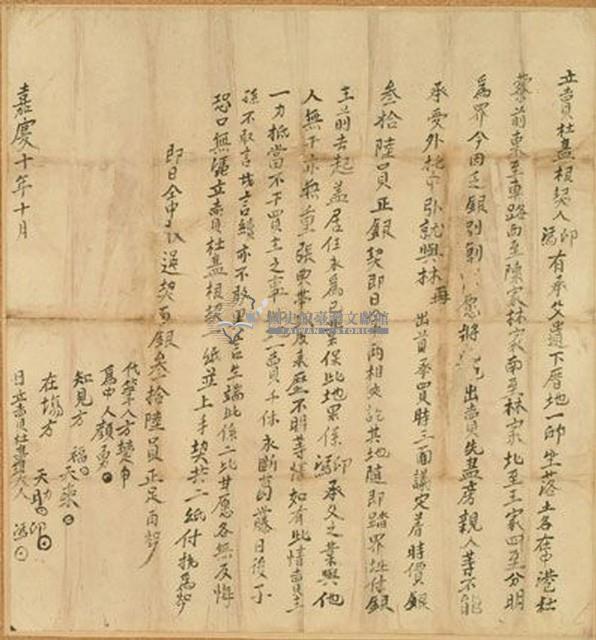 立賣杜盡根契人馮卬有承父遺下厝地一所坐落土名在中港杜
藔前東至車路西至陳家林家南至林家北至王家四至分明
為界今因乏銀別創愿將此地出賣先盡房親人等不能
承受外托中引就與林再出首承買時三面議定着時價銀
叁拾陸員正銀契即日仝中兩相交訖其地隨即踏界址付銀
主前去起盖居住永為己業保此地累係馮卬承父之業與他
人無干亦無重張典掛他人及來歷不明等情如有此情賣主
一力抵當不干買主之事一賣千休永斷葛藤日後子
孫不敢言找言續亦不敢異言生端此係二比甘愿各無反悔
恐口無憑立賣杜盡根契一紙並上手契共二紙付执為炤
即日仝中收過契面銀叁拾陸員正足再炤
代筆人方楚
為中人顏勇
知見方福 天來
在場方天助 卬
日立賣杜盡根契人馮
嘉慶十年十月
國史館臺灣文獻館
TAIWAN HISTORICA